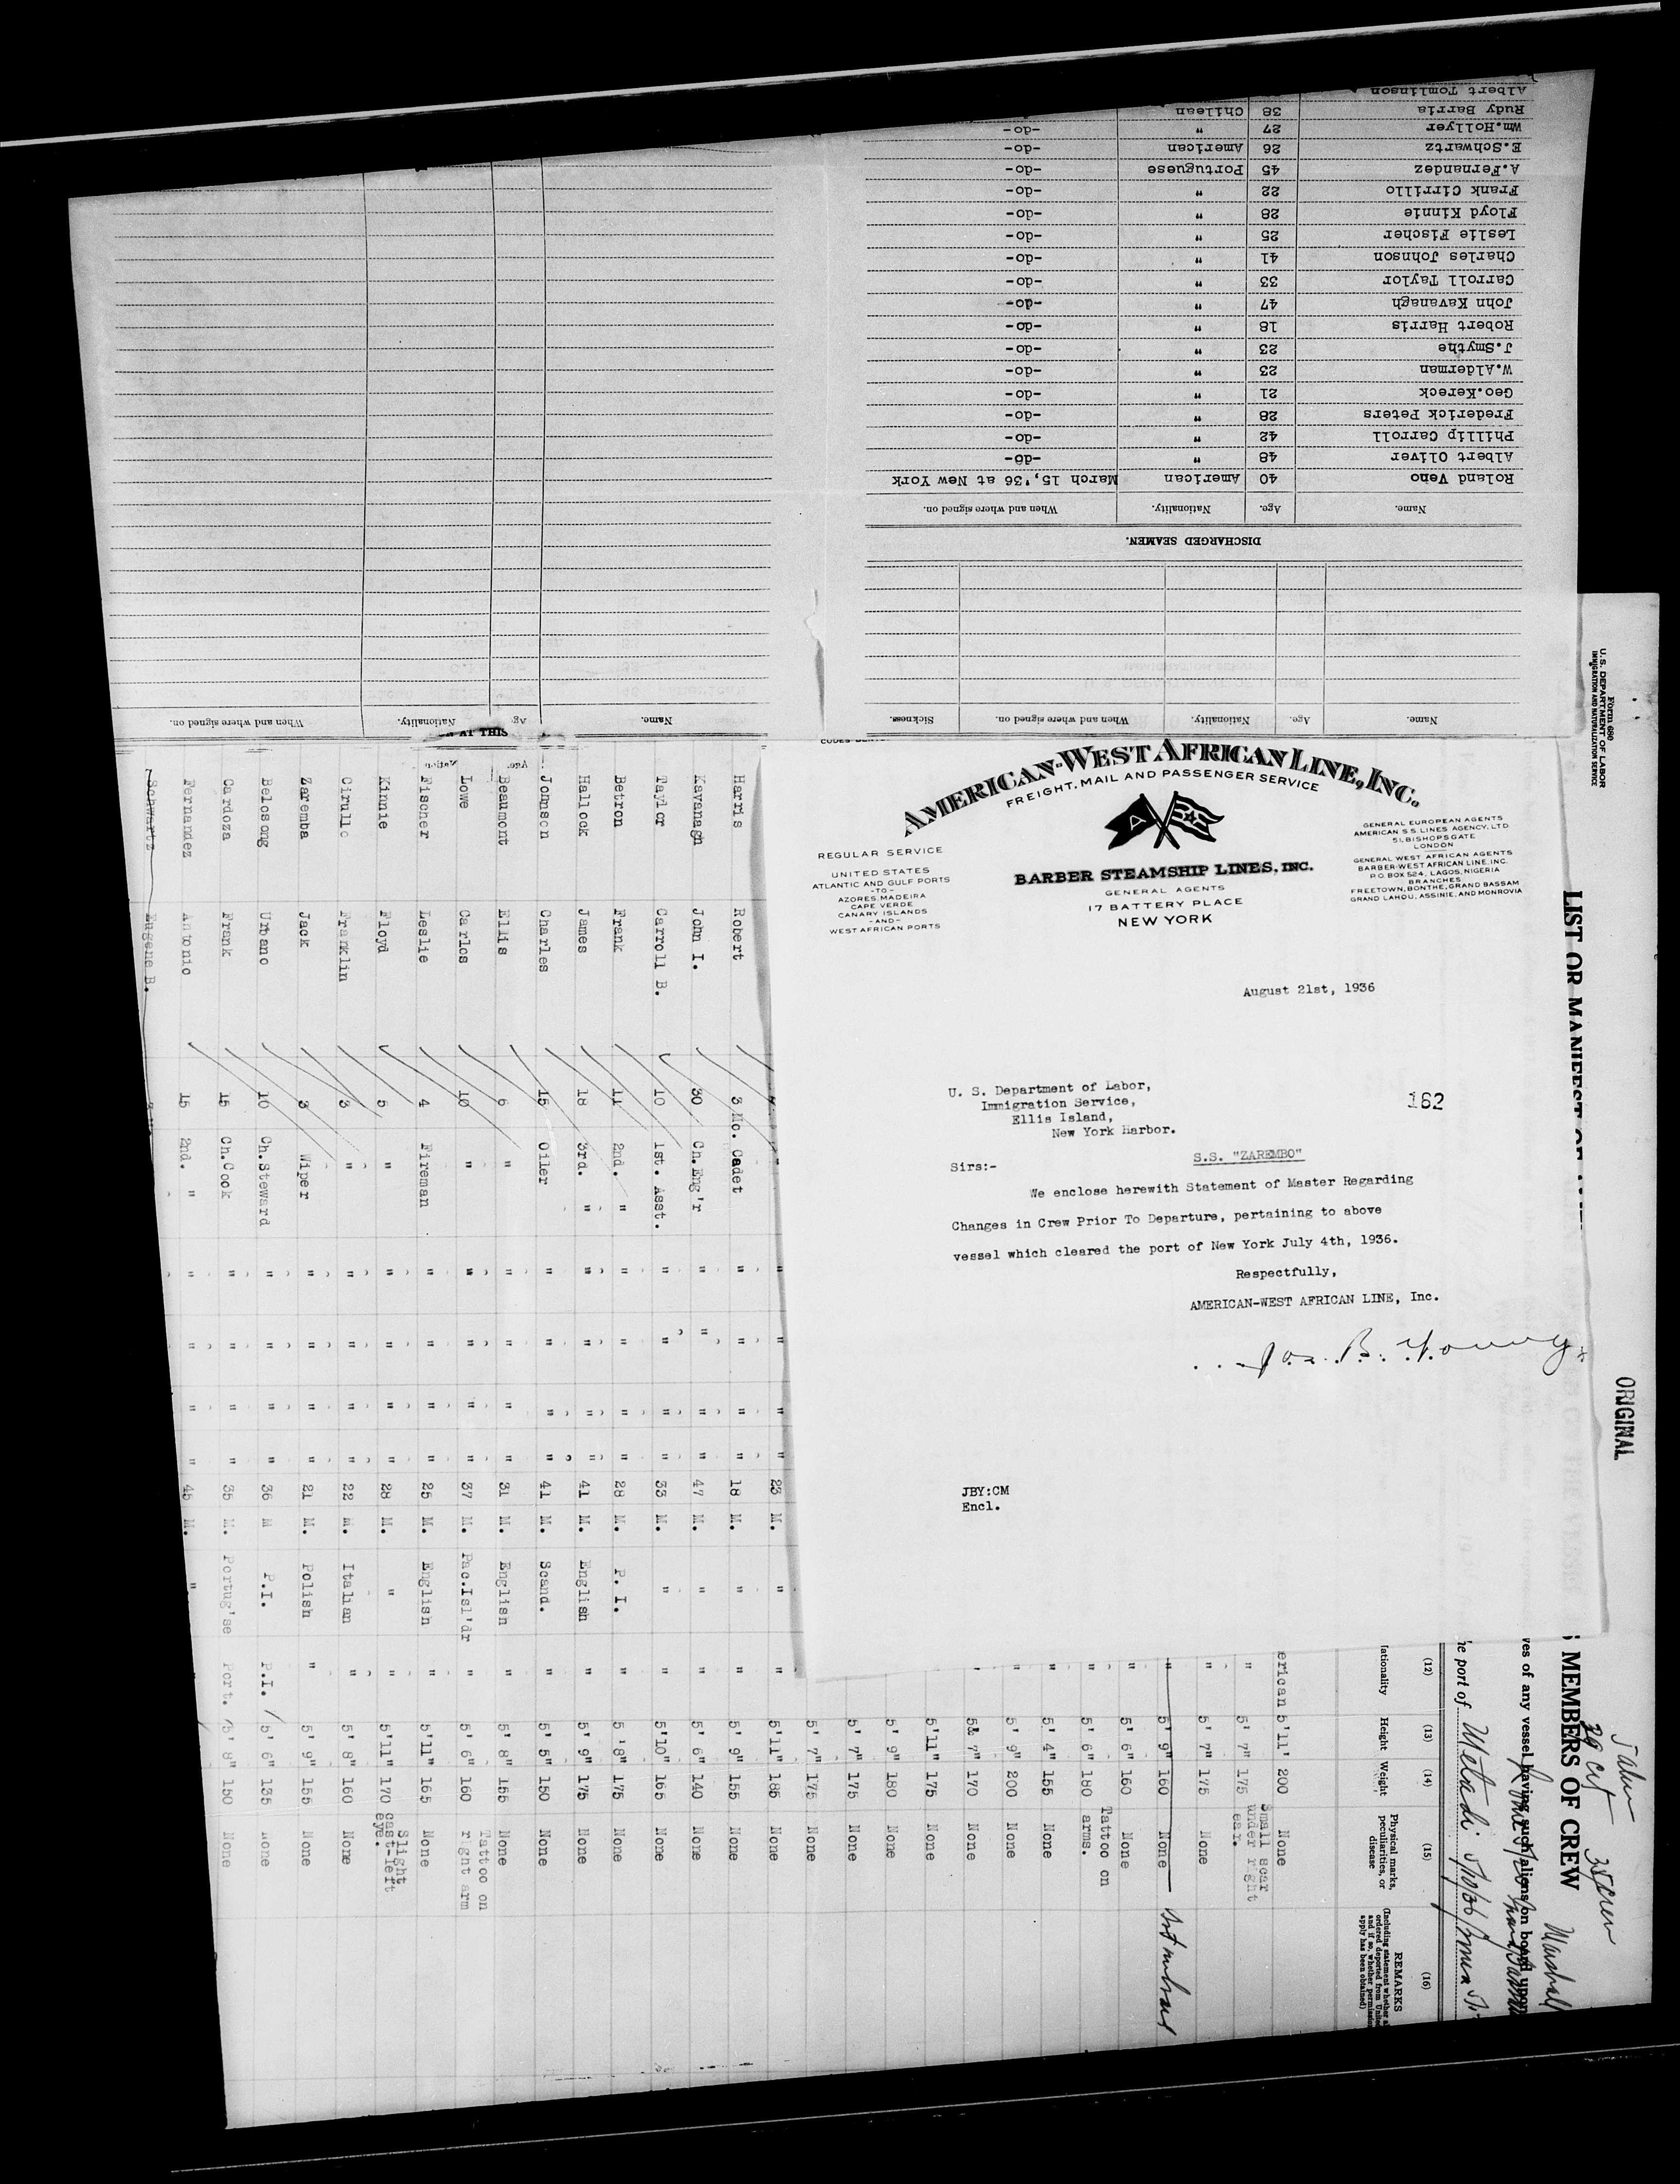 AMERICAN-WEST AFRICAN LINE, INC.
FREIGHT, MAIL AND PASSENGER SERVICE
REGULAR SERVICE
UNITED STATES
ATLANTIC AND GULF PORTS
-TO-
AZORES, MADEIRA
CAPE VERDE
CANARY ISLANDS
-AND-
WEST AFRICAN PORTS
A
BARBER STEAMSHIP LINES, INC.
GENERAL AGENTS
17 BATTERY PLACE
NEW YORK
GENERAL EUROPEAN AGENTS
AMERICAN S.S. LINES AGENCY, LTD
51, BISHOPSGATE
LONDON
GENERAL WEST AFRICAN AGENTS
BARBER-WEST AFRICAN LINE, INC.
P.O. BOX 524, LAGOS, NIGERIA
BRANCHES
FREETOWN, BONTHE, GRAND BASSAM
GRAND LAHOU, ASSINIE, AND MONROVIA
August 21st, 1936
U. S. Department of Labor,
Immigration Service,
Ellis Island,
New York Harbor.
162
S.S. "ZAREMBO"
Sirs:-
We enclose herewith Statement of Master Regarding
Changes in Crew Prior To Departure, pertaining to above
vessel which cleared the port of New York July 4th, 1936.
Respectfully,
AMERICAN-WEST AFRICAN LINE, Inc.
Jas. B. Young
JBY:CM
Encl.
Name. Age. Nationality. When and where signed on. Sickness.
DISCHARGED SEAMEN.
Name. Age. Nationality. When and where signed on.
Roland Veno 40 American March 15,'36 at New York
Albert Oliver 48 " -do-
Phillip Carroll 42 " -do-
Frederick Peters 28 " -do-
Geo.Kereck 21 " -do-
W.Alderman 23 " -do-
J.Smythe 23 " -do-
Robert Harris 18 " -do-
John Kavanagh 47 " -do-
Carroll Taylor 33 " -do-
Charles Johnson 41 " -do-
Leslie Fischer 25 " -do-
Floyd Kinnie 28 " -do-
Frank Cirrillo 22 " -do-
A.Fernandez 45 Portuguese -do-
E.Schwartz 26 American -do-
Wm.Hollyer 27 " -do-
Rudy Barria 38 Chilean
Albert Tomlinson
AT THIS
Name. Age Nationality. When and where signed on.
Form 680
U.S. DEPARTMENT OF LABOR
IMMIGRATION AND NATURALIZATION SERVICE
ORIGINAL
LIST OR MANIFEST OF
MEMBERS OF CREW
ves of any vessel having such aliens on board upon
he port of
(12) (13) (14) (15) (16)
ationality Height Weight Physical marks, peculiarities, or disease
REMARKS
erican 5'11' 200 None
" 5' 7" 175 Small scar under right ear.
" 5' 7" 175 None
" 5' 9" 160 None
" 5' 6" 160 None
" 5' 6" 180 Tattoo on arms.
" 5' 4" 155 None
" 5' 9" 200 None
5' 7" 170 None
5'11" 175 None
5' 9" 180 None
5' 7" 175 None
5' 7" 175 None
" " " " 23 M. " " 5'11" 185 None
Harris Robert 3 Mo. Cadet " " " " 18 M. " " 5' 9" 155 None
Kavanagh John I. 30 Ch.Eng'r " " " " 47 M. " " 5' 6" 140 None
Taylor Carroll B. 10 1st. Asst. " " " " 33 M. " " 5'10" 165 None
Betron Frank 11 2nd. " " " " " 28 M. P. I. " 5 '8" 175 None
Hallock James 18 3rd. " " " " " 41 M. English " 5' 9" 175 None
Johnson Charles 15 Oiler " " " " 41 M. Scand. " 5' 5" 150 None
Beaumont Ellis 6 " " " " " 31 M. English " 5' 8" 155 None
Lowe Carlos 10 " " " " " 37 M. Pac.Isl'dr " 5' 6" 160 Tattoo on right arm
Fischer Leslie 4 Fireman " " " " 25 M. English " 5'11" 165 None
Kinnie Floyd 5 " " " " " 28 M. " " 5'11" 170 Slight cast-left eye.
Cirullo Franklin 3 " " " " " 22 M. Italian " 5' 8" 160 None
Zaremba Jack 3 Wiper " " " " 21 M. Polish " 5' 9" 155 None
Belosong Urbano 10 Ch.Steward " " " " 36 M P.I. P.I. 5' 6" 135 None
Cardoza Frank 15 Ch.Cook " " " " 35 M. Portug'se Port. 5' 8" 150 None
Fernandez Antonio 15 2nd. " " " " " 45 M. "
Schwartz Eugene B.